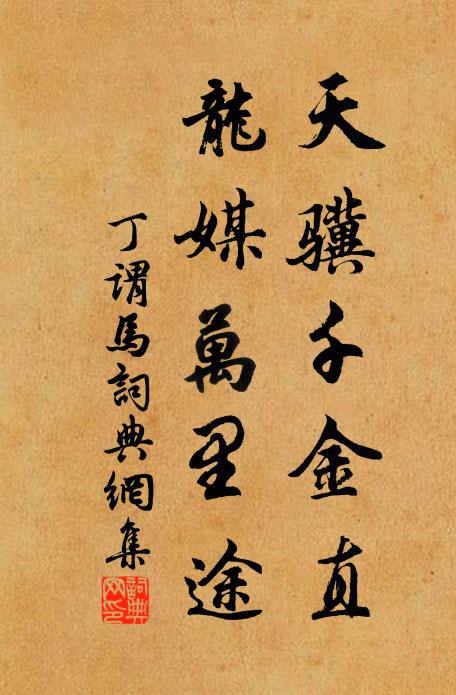 天骥千金直
龍媒萬里途
丁謂馬詞典網集
詞典網印